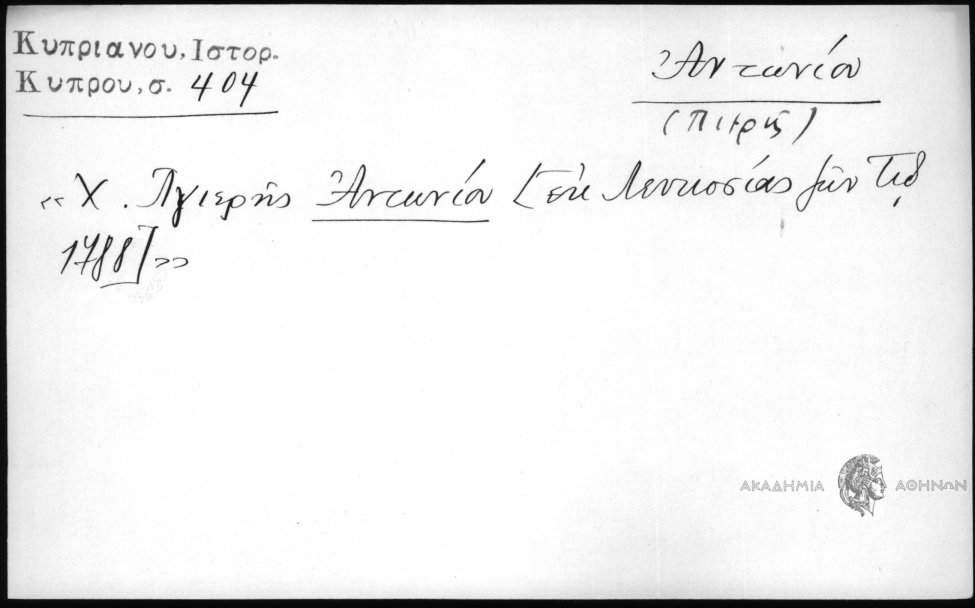 Κυπριανου, Ιστορ.
Κυπρου, σ. 404
Ἀντωνίου
(Πιερῆς)
«Χ. Πγιερῆς Ἀντωνίου [ἐκ Λευκοσίας
1788]»
ΑΚΑΔΗΜΙΑ ΑΘΗΝΩΝ